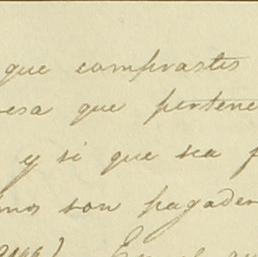 que comprastes
esa que pertene
y si que sea p
mos son pagader